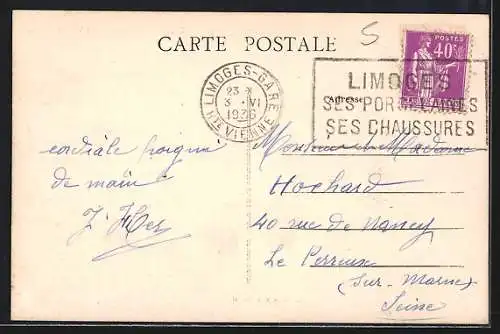 CARTE POSTALE
5
POSTES
40c
LIMOGES-GARE
23 - *
3 - VI
1936
Hte VIENNE
LIMOGES
SES PORCELAINES
SES CHAUSSURES
Adresse
cordiale poignée
de main
Monsieur et Madame
Hochard
40 rue de Nancy
Le Perreux
(sur-Marne)
Seine